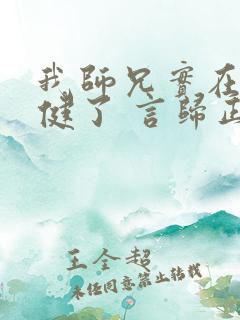 我師兄實在
健了 言歸正
王全超
未經同意禁止轉載